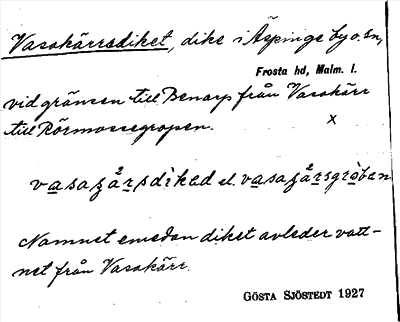 Vasakärrsdiket, dike i Äspinge by o. sn,
Frosta hd, Malm. l.
vid gränsen till Benarp från Vasakärr
till Rörmossegropen. x
vasaʒårsdikəd el. vasaʒårsgròban
Namnet emedan diket avleder vatt-
net från Vasakärr.
GÖSTA SJÖSTEDT 1927